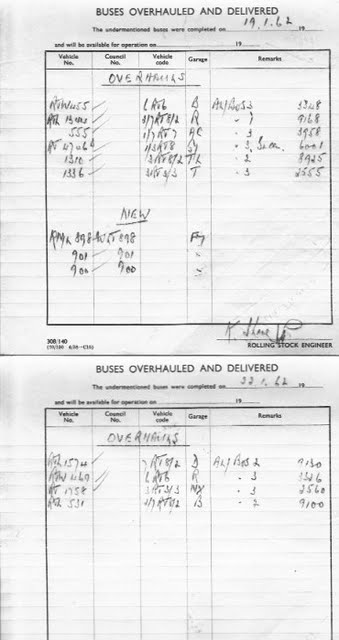 BUSES OVERHAULED AND DELIVERED
The undermentioned buses were completed on 19.1.62 19
and will be available for operation on 19
Vehicle No. Council No. Vehicle code Garage Remarks
OVERHAULS
RTW455 6RT6 B AL/BOS 3 3348
3/7RT8/2 R - 9168
555 1/7RT7 AC - 3 3958
1/3RT8 - 3. 6001
1310 3RT8/2 TL - 2 8925
1336 3RT3/3 T - 3 2555
NEW
RML898 WLT898 Fy
901 901 "
900 900 "
ROLLING STOCK ENGINEER
308/140
BUSES OVERHAULED AND DELIVERED
The undermentioned buses were completed on 22.1.62 19
and will be available for operation on 19
Vehicle No. Council No. Vehicle code Garage Remarks
OVERHAULS
RTL1574 7RT8/2 B AL/BOS 2 9130
RTW469 6RT6 R - 3 3326
RT 1758 3RT3/3 NX - 3 2560
RTL 531 1/7RT8/2 B - 2 9100